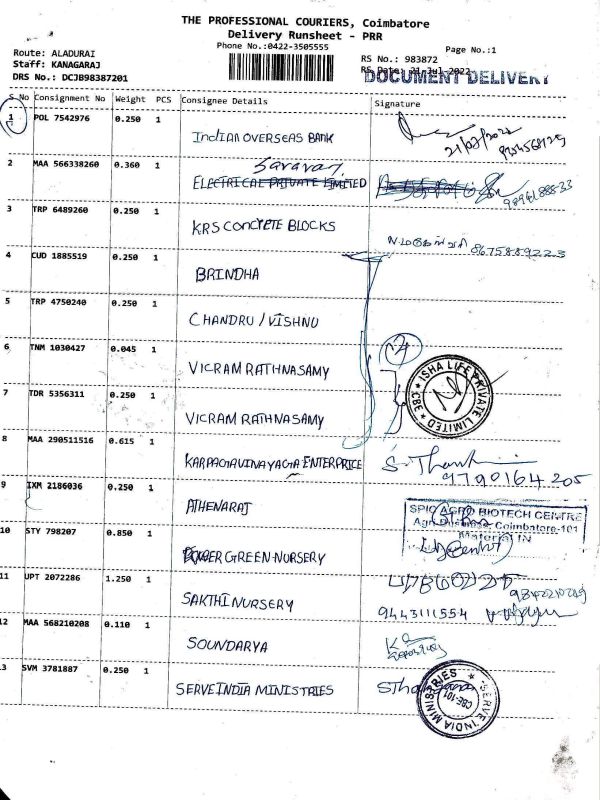 THE PROFESSIONAL COURIERS, Coimbatore
Delivery Runsheet - PRR
Phone No.:0422-3505555
Page No.:1
Route: ALADURAI
Staff: KANAGARAJ
DRS No.: DCJB98387201
RS No.: 983872
RS Date: 21-Jul-2022
DOCUMENT DELIVERY
S No Consignment No Weight PCS Consignee Details Signature
1 POL 7542976 0.250 1 INDIAN OVERSEAS BANK
2 MAA 566338260 0.360 1 ELECTRICAL PRIVATE LIMITED
3 TRP 6489260 0.250 1 KRS CONCRETE BLOCKS 8675889223
4 CUD 1885519 0.250 1 BRINDHA
5 TRP 4750240 0.250 1 CHANDRU / VISHNU
6 TNM 1030427 0.045 1 VICRAM RATHNASAMY
ISHA LIFE PRIVATE LIMITED CBE
7 TDR 5356311 0.250 1 VICRAM RATHNASAMY
8 MAA 290511516 0.615 1 KARPAGAVINAYAGA ENTERPRICE 9790164205
9 IXM 2186036 0.250 1 ATHENARAJ
SPIC AGRO BIOTECH CENTRE
Coimbatore-101
Material IN
10 STY 798207 0.850 1 GREEN NURSERY
11 UPT 2072286 1.250 1 SAKTHI NURSERY
9443111554
12 MAA 568210208 0.110 1 SOUNDARYA
13 SVM 3781887 0.250 1 SERVE INDIA MINISTRIES
SERVE INDIA MINISTRIES CBE-101